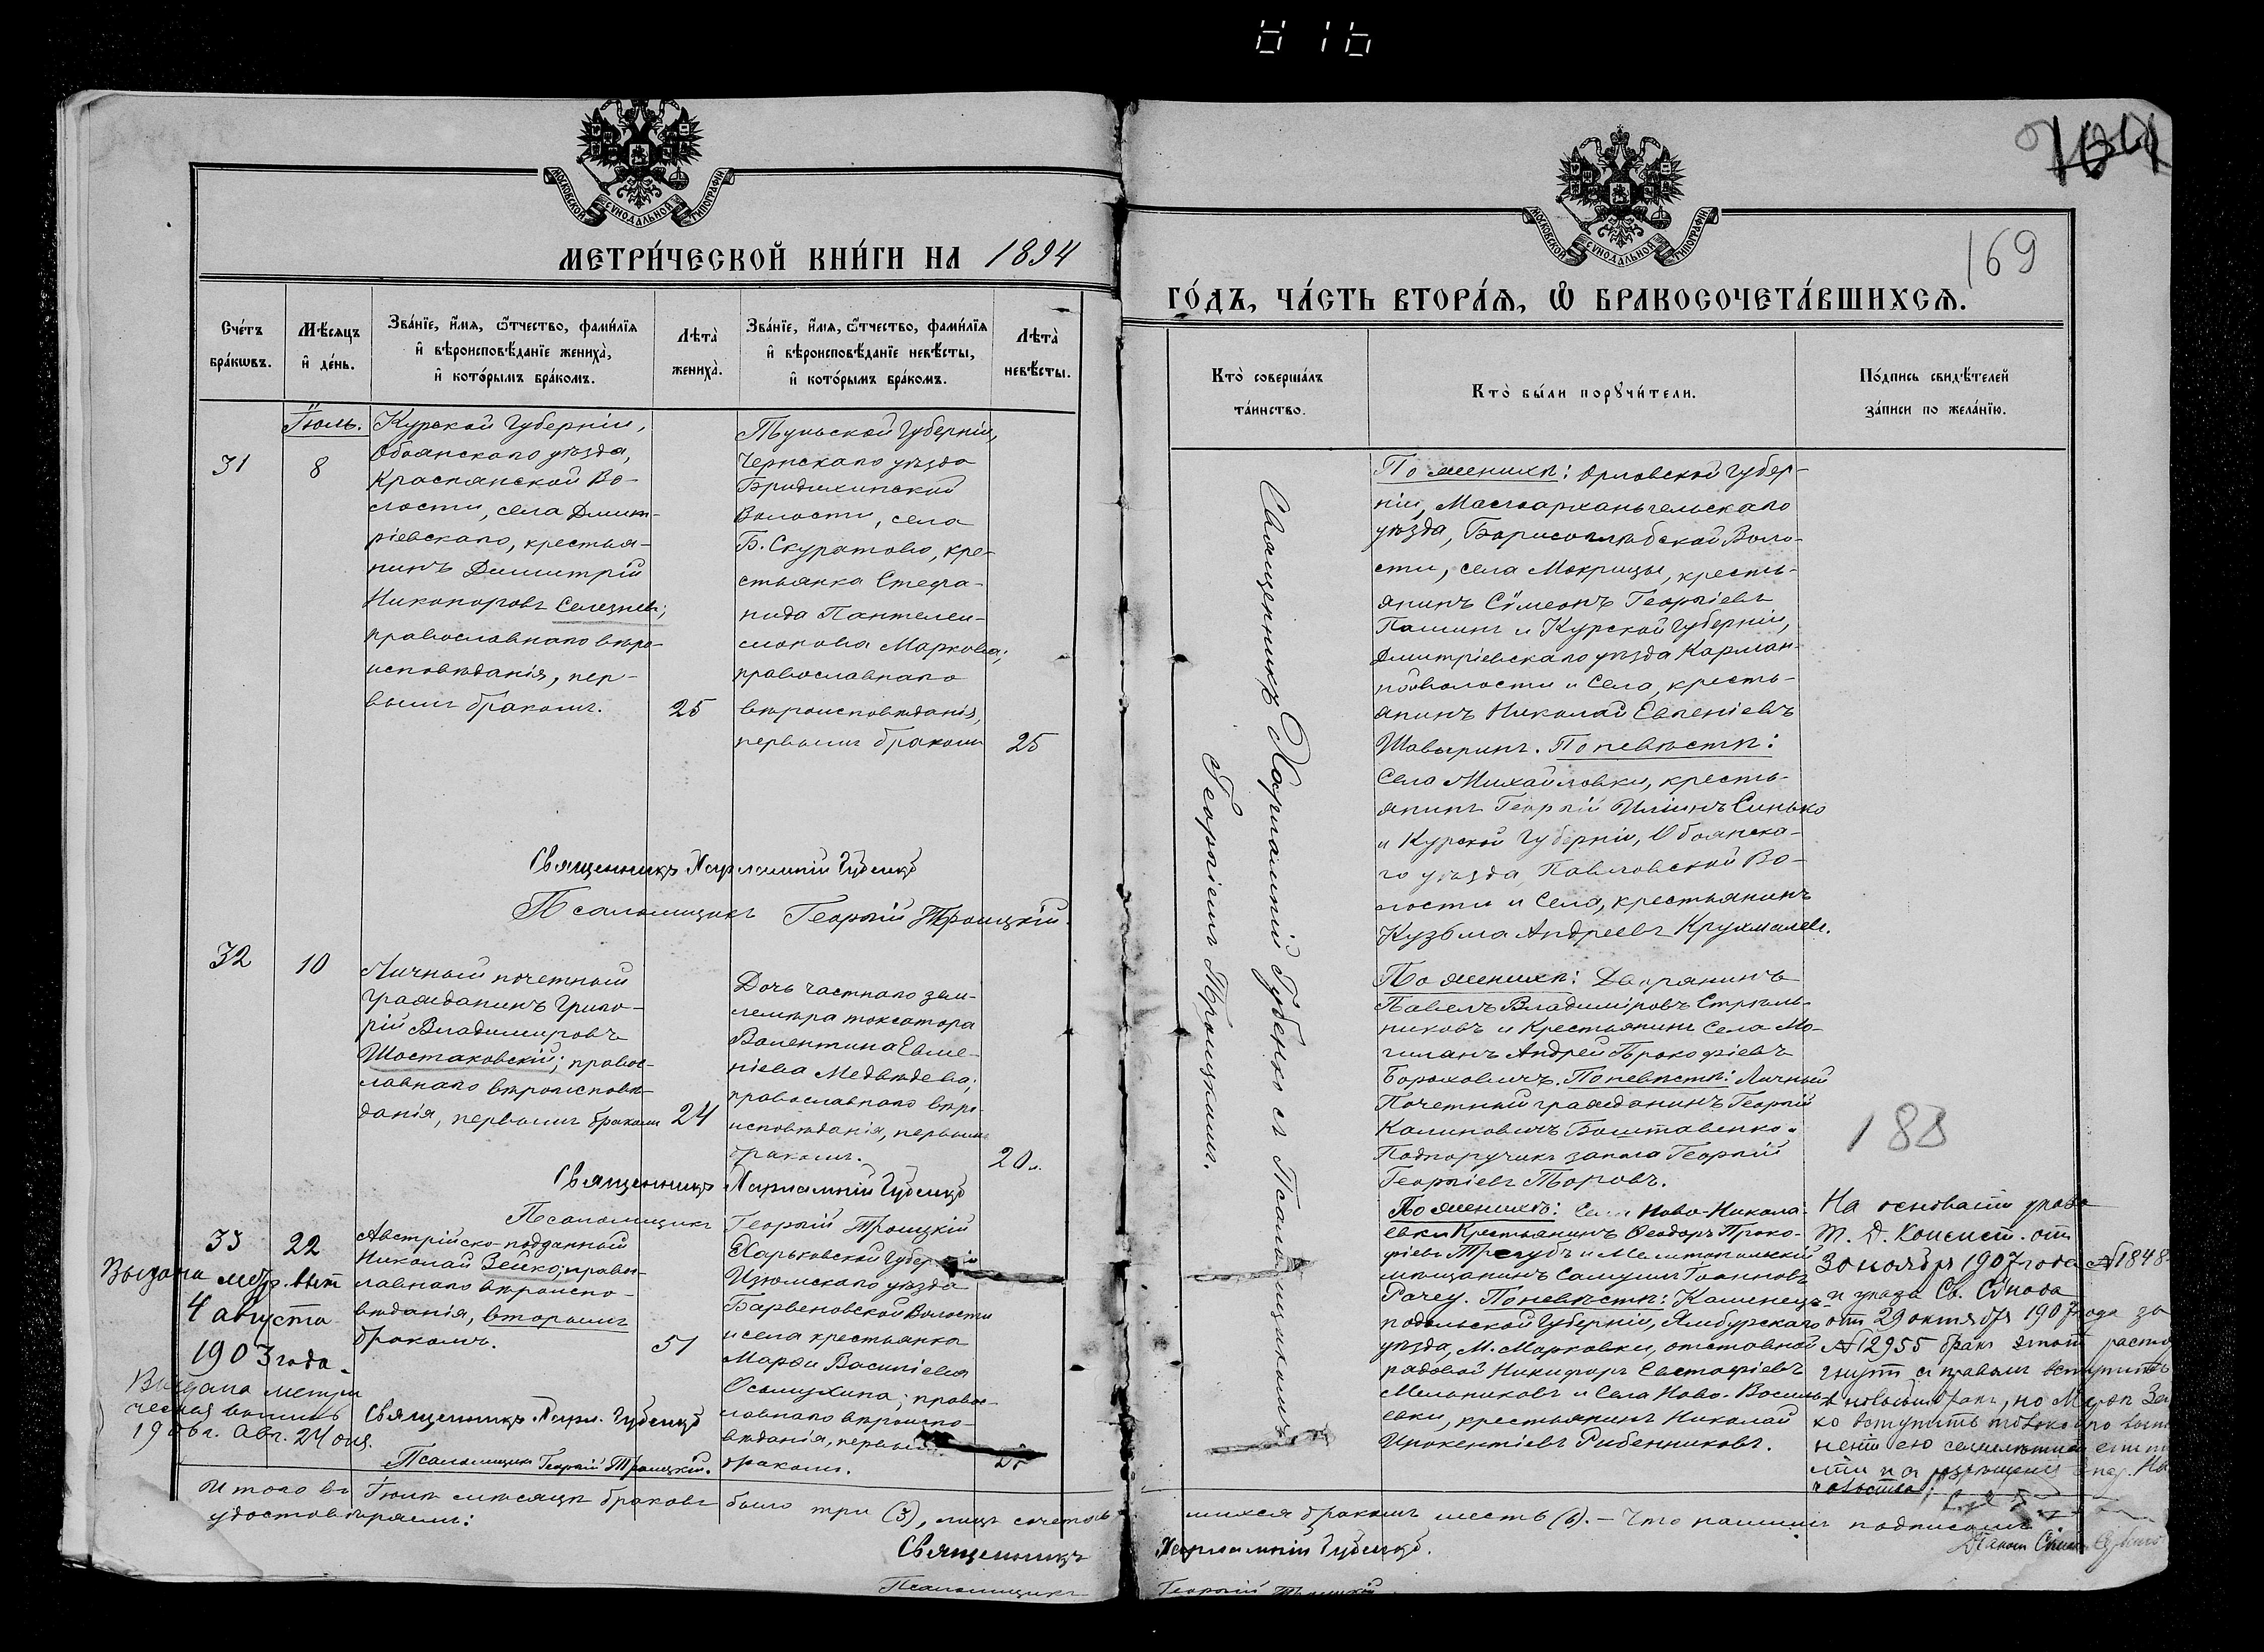 МОСКОВСКОЙ СѴНОДАЛЬНОЙ ТИПОГРАФІИ
МЕТРИ́ЧЕСКОЙ КНИ́ГИ НА 1894
Сче́тъ бра́кωвъ.
Мѣ́сяцъ и҆ де́нь.
Зва́нїе, и҆́мя, ѻ҆́тчество, фами́лїя
и҆ вѣроисповѣ́данїе жениха̀,
и҆ кото́рымъ бра́комъ.
Лѣта̀ жениха̀.
Зва́нїе, и҆́мя, ѻ҆́тчество, фами́лїя
и҆ вѣроисповѣ́данїе невѣ́сты,
и҆ кото́рымъ бра́комъ.
Лѣта̀ невѣ́сты.
31
Іюль.
8
Курской Губерніи,
Обоянскаго уѣзда,
Краснянской Во-
лости, села Дмит-
ріевскаго, крестья-
нинъ Димитрій
Никоноровъ Селезневъ;
православнаго вѣро-
исповѣданія, пер-
вымъ бракомъ.
25
Тульской Губерніи,
Чернскаго уѣзда
Волости, села
Б. Скуратово, кре-
стьянка Стефа-
нида Пантелеи-
монова Маркова;
православнаго
вѣроисповѣданія,
первымъ бракомъ
25
Священникъ Харлампій Губенко
Псаломщикъ Георгій Троицкій.
32
10
Личный почетный
гражданинъ Григо-
рій Владимировъ
Шостаковскій; правос-
лавнаго вѣроисповѣ-
данія, первымъ бракомъ
24
Дочь частнаго зем-
лемѣра таксатора
Валентина Евме-
ніева Медвѣдева;
православнаго вѣро-
исповѣданія, первымъ
бракомъ.
20.
Священникъ Харлампій Губенко
Псаломщикъ Георгій Троицкій
33
22
Австрійско-подданный
Николай Зейко; правос-
лавнаго вѣроиспо-
вѣданія, вторымъ
бракомъ.
51
Харьковской Губерніи
Изюмскаго уѣзда
Барвеновской Волости
и села крестьянка
Марѳа Василіева
Осьмухина; правос-
лавнаго вѣроиспо-
вѣданія, первымъ
бракомъ.
Выдана метр. вып
4 августа
1903 года.
Выдана метри
ческая выпись
Авг. 24 дня.
Священникъ Харл. Губенко
Псаломщикъ Георгій Троицкій.
Итого въ Іюлѣ мѣсяцѣ браковъ было три (3), лицъ сочетав
удостовѣряемъ:
Священникъ
Псаломщикъ
МОСКОВСКОЙ СѴНОДАЛЬНОЙ ТИПОГРАФІИ
169
ГО́ДЪ, ЧА́СТЬ ВТОРА́Я, Ѡ҆ БРАКОСОЧЕТА́ВШИХСЯ.
Кто̀ соверша́лъ
та́инство.
Кто̀ бы́ли порꙋчи́тели.
По́дпись свидѣ́телей
за́писи по жела́нїю.
Священникъ Харлампій Губенко съ Псаломщикомъ
Георгіемъ Троицкимъ.
По женихѣ: Орловской Губер-
ніи, Малоархангельскаго
уѣзда, Борисоглѣбской Воло-
сти, села Мокрицы, кресть-
янинъ Сѵмеонъ Георгіевъ
Пашинъ и Курской Губерніи,
Дмитріевскаго уѣзда Карман-
ной волости и села, кресть-
янинъ Николай Евгеніевъ
Шавыринъ. По невѣстѣ:
Села Михайловки, кресть-
янинъ Георгій Ильинъ Синько
и Курской Губерніи, Обоянска-
го уѣзда, Павловской Во-
лости и села, крестьянинъ
Кузьма Андреевъ Крухмалевъ.
По женихѣ: Дворянинъ
Павелъ Владиміровъ Стрѣль-
никовъ и Крестьянинъ села Мо-
гилянъ Андрей Прокофіевъ
Бороховичъ. По невѣстѣ: Личный
Почетный гражданинъ Георгій
Калиновичъ Баштавенко.
Подпоручикъ запаса Георгій
Георгіевъ Торовъ.
188
По женихѣ: Села Ново-Никола-
евки Крестьянинъ Ѳеодоръ Проко-
фіевъ Трегубъ и Мелитопольскій
мѣщанинъ Самуилъ Іоанновъ
Рачеу. По невѣстѣ: Каменец-
подольской Губерніи, Ямбурскаго
уѣзда, М. Марковки, отставной
рядовой Никифоръ Евстафіевъ
Мельниковъ и села Ново-Василь-
евки, крестьянинъ Николай
Инокентіевъ Рибенниковъ.
На основаніи указа
Т. Д. Консист. отъ
30 ноября 1907 года №1848
и указа Св. Сѵнода
отъ 29 октября 1907 года за
№12955 бракъ этотъ расто
гнутъ съ правомъ вступить
въ новый бракъ, но Марѳѣ Зей
ко вступить только по
неніи ею семилѣтней епити
міи
шихся бракомъ шесть (6). — Что нашимъ подписомъ
Харлампій Губенко.
Георгій Троицкій